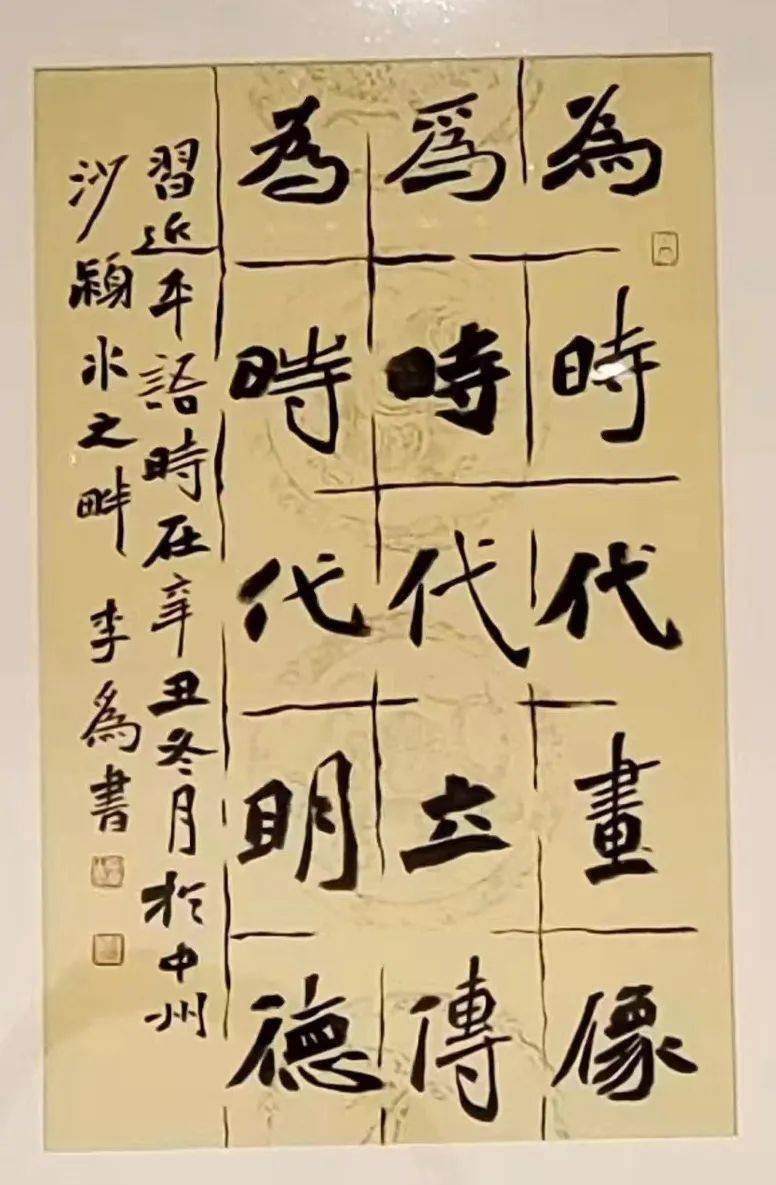 為時代畫像
爲時代立傳
為時代明德
習近平語時在辛丑冬月於中州
沙潁水之畔 李為書